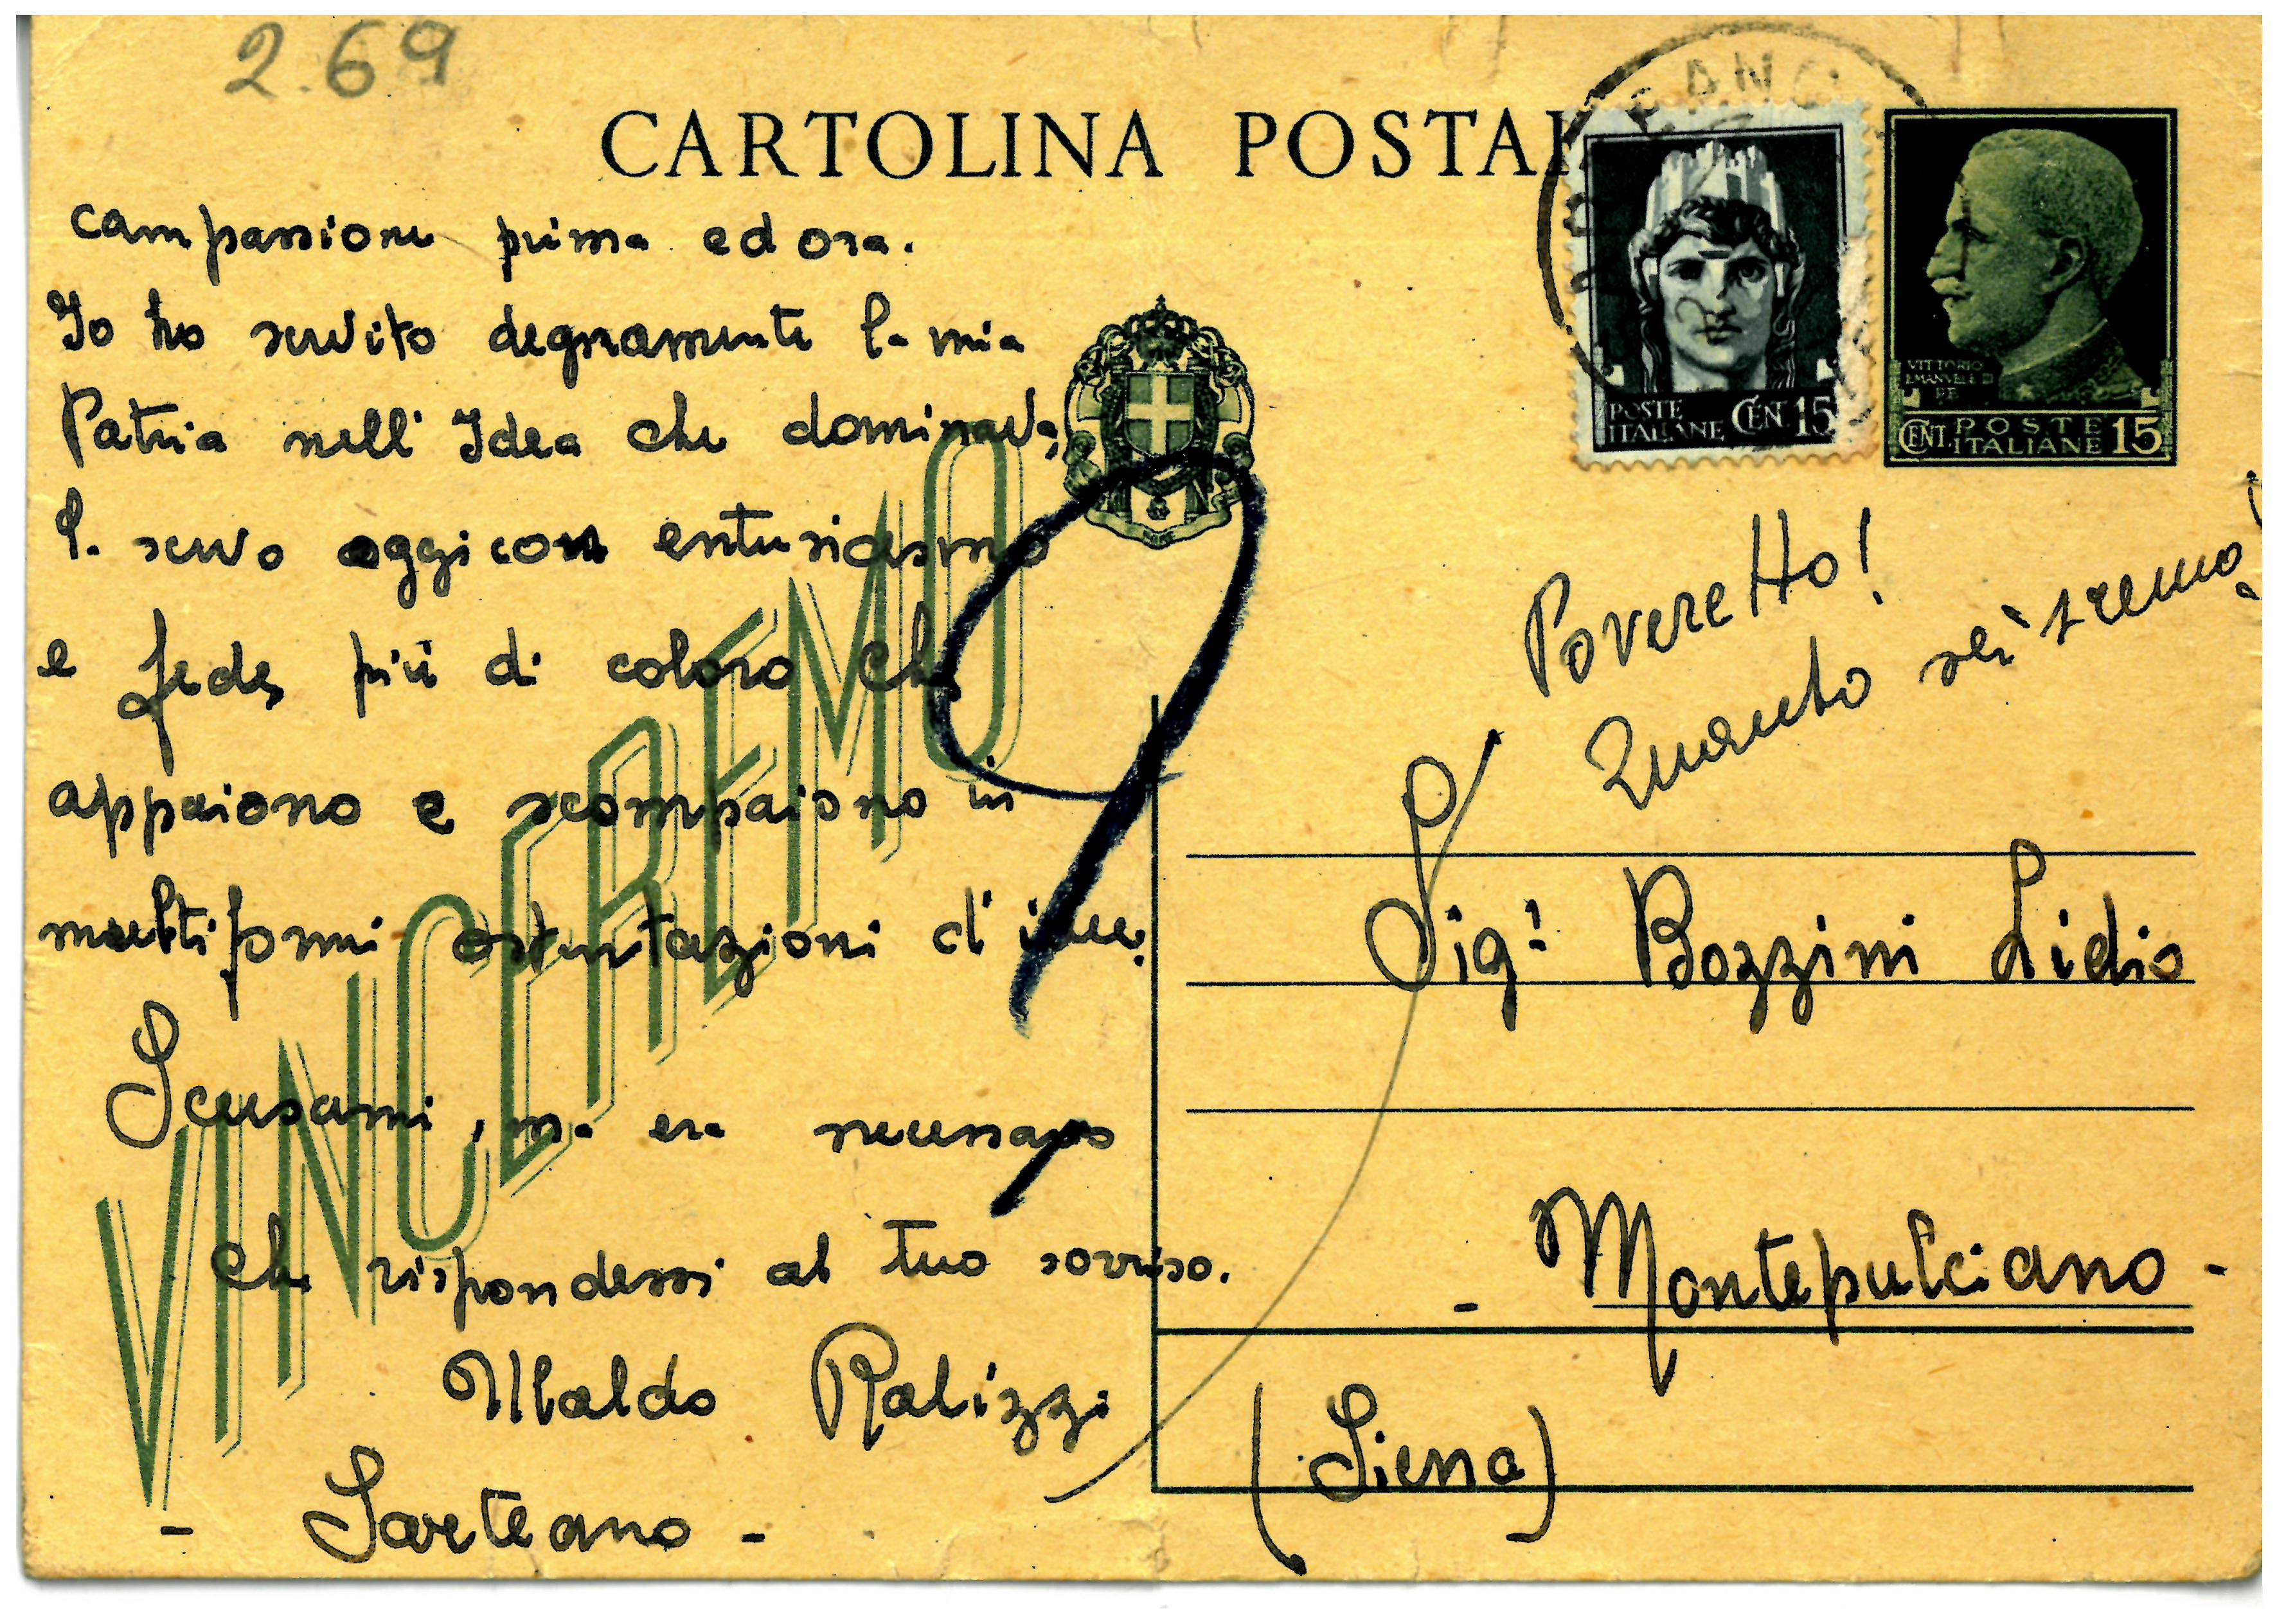 2.69
CARTOLINA POSTAL
compassione prima ed ora.
Io ho servito degnamente la mia
Patria nell'Idea che dominava,
la servo oggi con entusiasmo
e fede, più di coloro che
appaiono e scompaiono in
multiformi ostentazioni d'idee.
Scusami, ma era necessario
che rispondessi al tuo sorriso.
Ubaldo Ralizzi
- Sarteano -
VINCEREMO
9
POSTE
ITALIANE CENT 15
VITTORIO
EMANVELE III
RE
CENT. POSTE
ITALIANE 15
Poveretto!
Quanto sei scemo!
Sig. Bozzini Lidio
- Montepulciano -
(Siena)